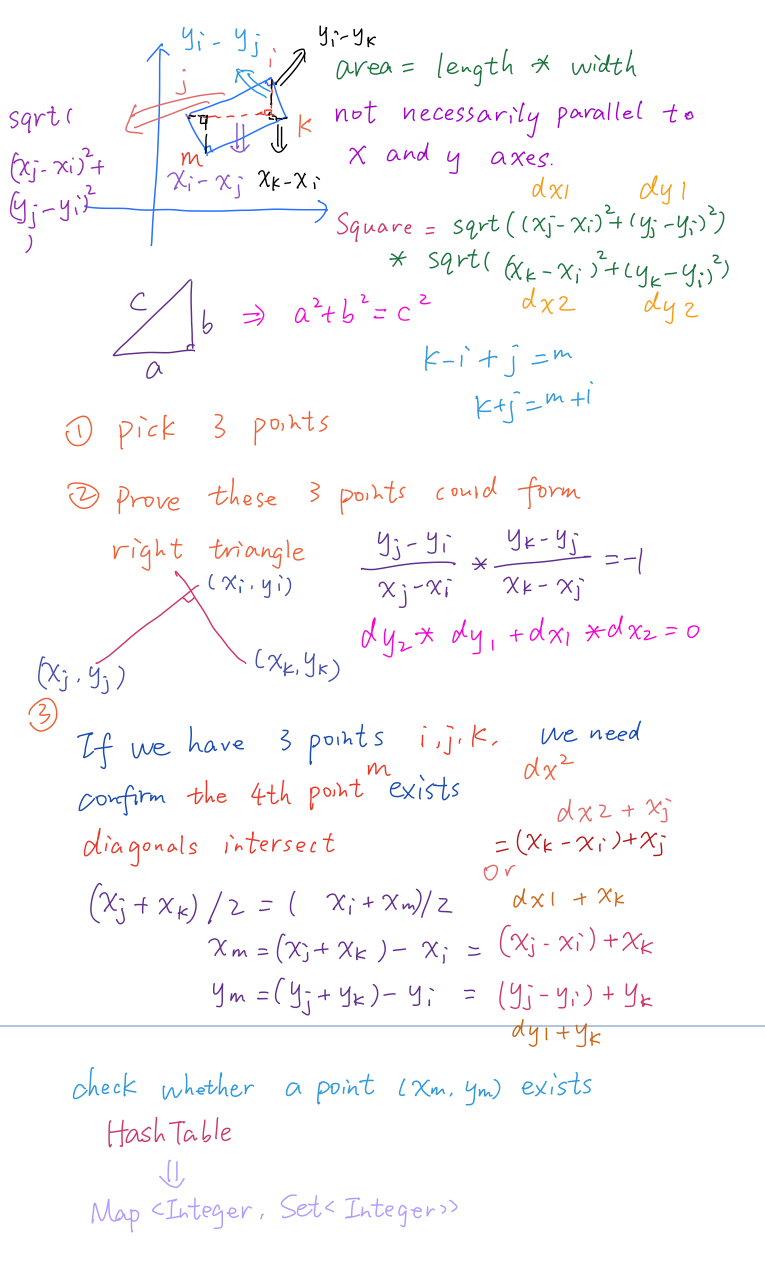 yi-yj
yi-yk
j
i
area = length * width
sqrt(
(xj-xi)²+
(yj-yi)²
)
k
m
xi-xj
xk-xi
not necessarily parallel to
x and y axes.
dx1 dy1
Square = sqrt((xj-xi)²+(yj-yi)²)
* sqrt((xk-xi)²+(yk-yi)²)
dx2 dy2
c
b
a
⇒ a²+b²=c²
k-i+j=m
k+j=m+i
① pick 3 points
② Prove these 3 points could form
right triangle
(xi,yi)
(xj,yj)
(xk,yk)
yj-yi / xj-xi * yk-yj / xk-xj = -1
dy2 * dy1 + dx1 * dx2 = 0
③
If we have 3 points i,j,k, we need
confirm the 4th point m exists
dx²
diagonals intersect
dx2 + xj
=(xk-xi)+xj
or
dx1 + xk
(xj+xk)/2 = (xi+xm)/2
xm=(xj+xk)-xi = (xj-xi)+xk
ym=(yj+yk)-yi = (yj-yi)+yk
dy1+yk
check whether a point (xm,ym) exists
HashTable
⇓
Map<Integer, Set<Integer>>